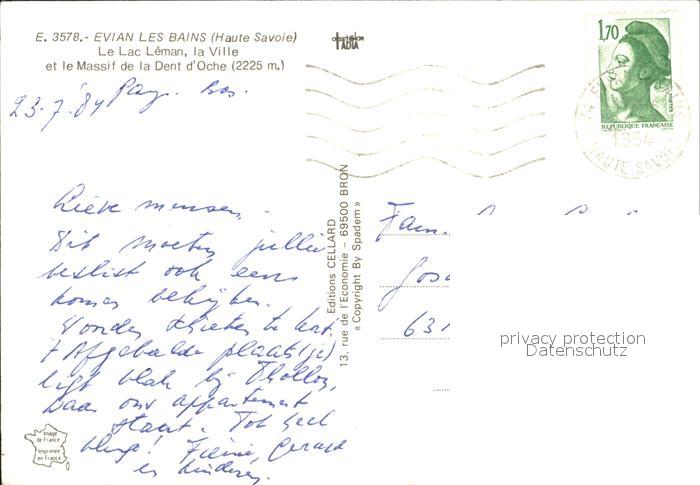 E. 3578.- EVIAN LES BAINS (Haute Savoie)
Le Lac Léman, la Ville
et le Massif de la Dent d'Oche (2225 m.)
23.7.'84 Pays-Bas.
Lieve mensen,
Dit moeten jullie
beslist ook eens
komen bekijken.
Woorden schieten te kort.
Afgebeelde plaats(je)
ligt vlak bij Thollon,
waar ons appartement
staat. Tot heel
en kinderen.
1,70
POSTES
REPUBLIQUE FRANÇAISE
1984
HAUTE SAVOIE
Editions CELLARD
13, rue de l'Economie – 69500 BRON
« Copyright By Spadem »
Fam.
Jos
631
privacy protection
Datenschutz
Image
de France
Imprimée
en France